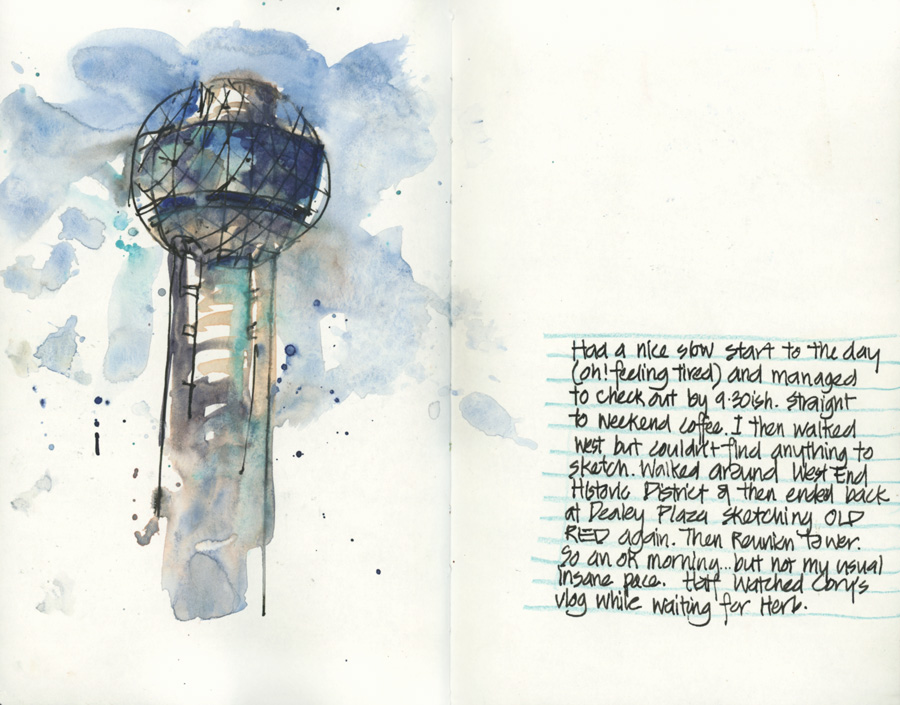 Had a nice slow start to the day
(oh! feeling tired) and managed
to check out by 9.30ish. Straight
to weekend coffee. I then walked
west but couldn't find anything to
sketch. Walked around West End
Historic District & then ended back
at Dealey Plaza sketching OLD
RED again. Then Reunion Tower.
So an ok morning...but not my usual
insane pace. Half watched Cory's
vlog while waiting for Herb.